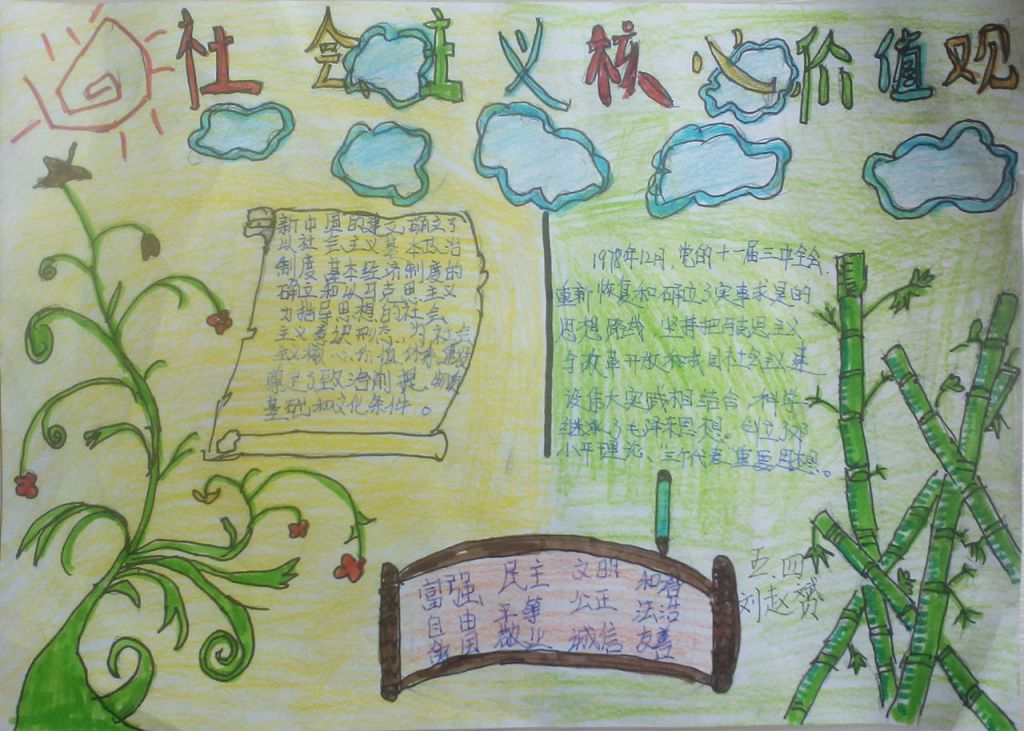 社会主义核心价值观
新中国的建立,确立了
以社会主义基本政治
制度基本经济制度的
确立和以马克思主义
为指导思想的社会
主义意识形态,为社会
主义核心价值体系建设
奠定了政治前提,物质
基础和文化条件。
1978年12月,党的十一届三中全会,
重新恢复和确立了实事求是的
思想路线 坚持把马克思主义
与改革开放和我国社会主义建
设伟大实践相结合,科学
继承了毛泽东思想。创立了邓
小平理论、"三个代表"重要思想。
富强 民主 文明 和谐
自由 平等 公正 法治
爱国 敬业 诚信 友善
五、四
刘赵赟